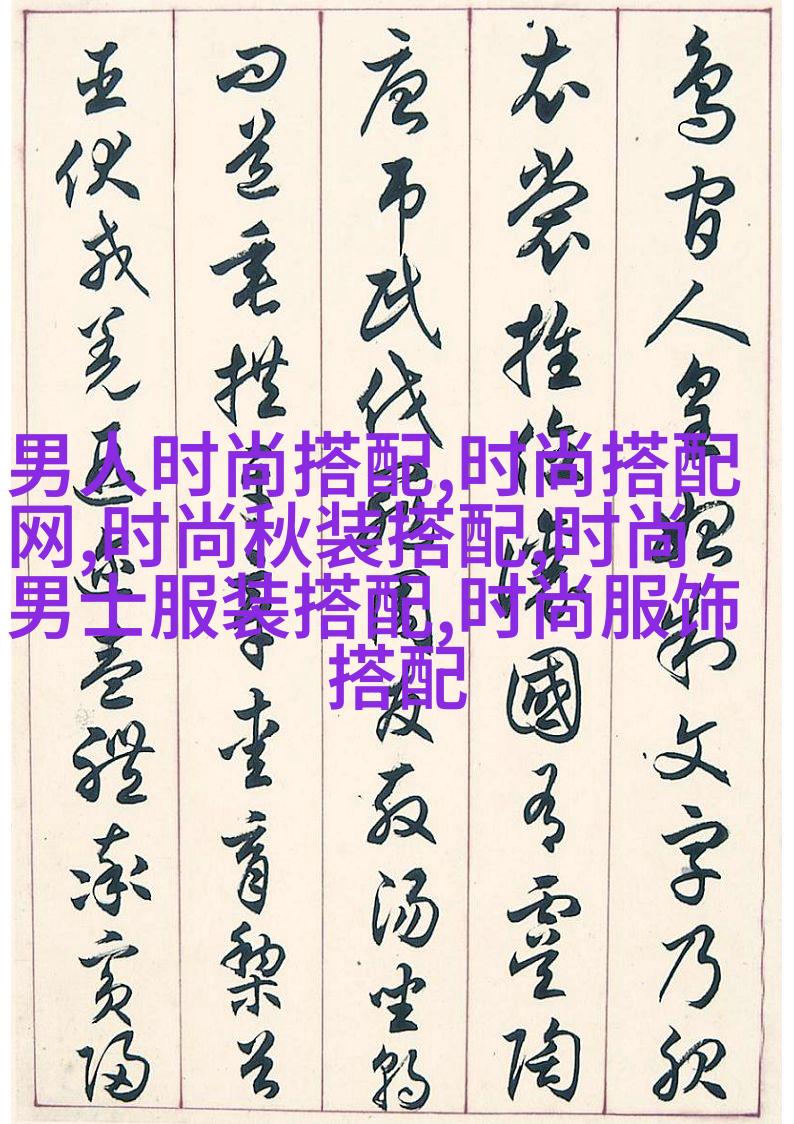 鳥官人皇始制文字乃服
衣裳推位讓國有虞陶
唐弔民伐罪周發殷湯坐朝
問道垂拱平章愛育黎首
臣伏戎羌遐邇壹體率賓歸
男人时尚搭配,时尚搭配
网,时尚秋装搭配,时尚
男士服装搭配,时尚服饰
搭配